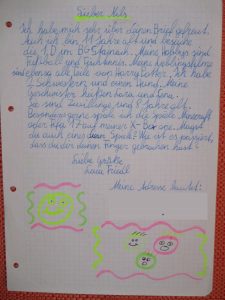 Lieber Nils
Ich habe mich sehr über deinen Brief gefreut.
Auch ich bin 11 Jahre alt und besuche
die 1.D im BG Hobbys sind
Fußball und Meine Lieblingsfilme
sind ebenso alle Teile von Harry Potter. Ich habe
2 Schwestern und einen Hund. Meine
Geschwister heißen Sara und Lena.
Sie sind Zwillinge und 8 Jahre alt.
Besonders gerne spiele ich die Spiele Minecraft
oder Fifa 17 auf meiner X-Box one. Magst
du auch eines der Spiele? Wie ist es passiert,
dass du dir deinen Finger gebrochen hast?
Liebe Grüße
Friedl
Meine Adresse lautet: